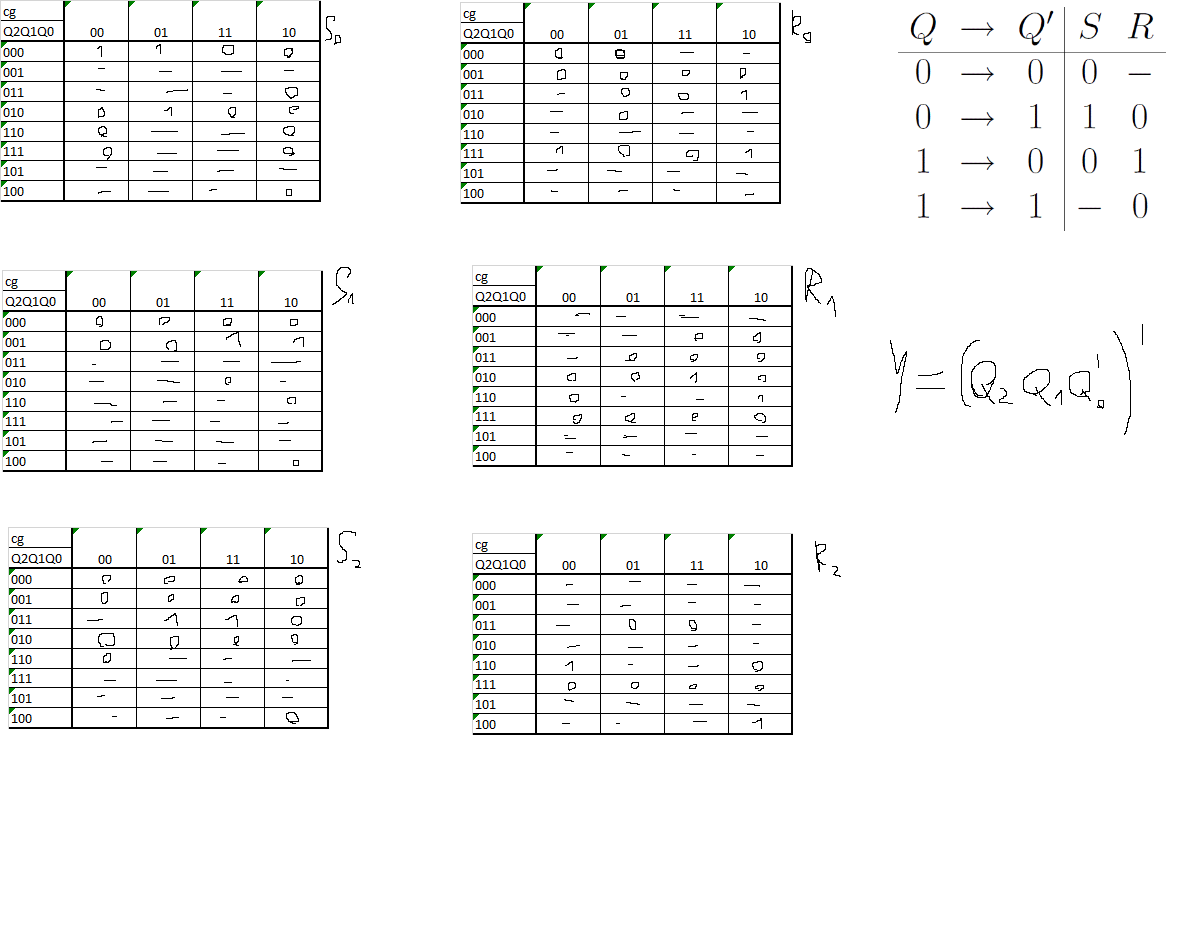 cg
Q2Q1Q0 00 01 11 10
000 1 1 0 0
001 - - - -
011 - - - 0
010 0 1 0 0
110 0 - - 0
111 0 - - 0
101 - - - -
100 - - - 0
S0
cg
Q2Q1Q0 00 01 11 10
000 0 0 - -
001 0 0 0 0
011 - 0 0 1
010 - 0 - -
110 - - - -
111 1 0 0 1
101 - - - -
100 - - - -
R0
Q → Q′ S R
0 → 0 0 −
0 → 1 1 0
1 → 0 0 1
1 → 1 − 0
cg
Q2Q1Q0 00 01 11 10
000 0 0 0 0
001 0 0 1 1
011 - - - -
010 - - 0 -
110 - - - 0
111 - - - -
101 - - - -
100 - - - 0
S1
cg
Q2Q1Q0 00 01 11 10
000 - - - -
001 - - 0 0
011 - 0 0 0
010 0 0 1 0
110 0 - - 1
111 0 0 0 0
101 - - - -
100 - - - -
R1
Y=(Q2Q1Q0')'
cg
Q2Q1Q0 00 01 11 10
000 0 0 0 0
001 0 0 0 0
011 - 1 1 0
010 0 0 0 0
110 0 - - -
111 - - - -
101 - - - -
100 - - - 0
S2
cg
Q2Q1Q0 00 01 11 10
000 - - - -
001 - - - -
011 - 0 0 -
010 - - - -
110 1 - - 0
111 0 0 0 0
101 - - - -
100 - - - 1
R2